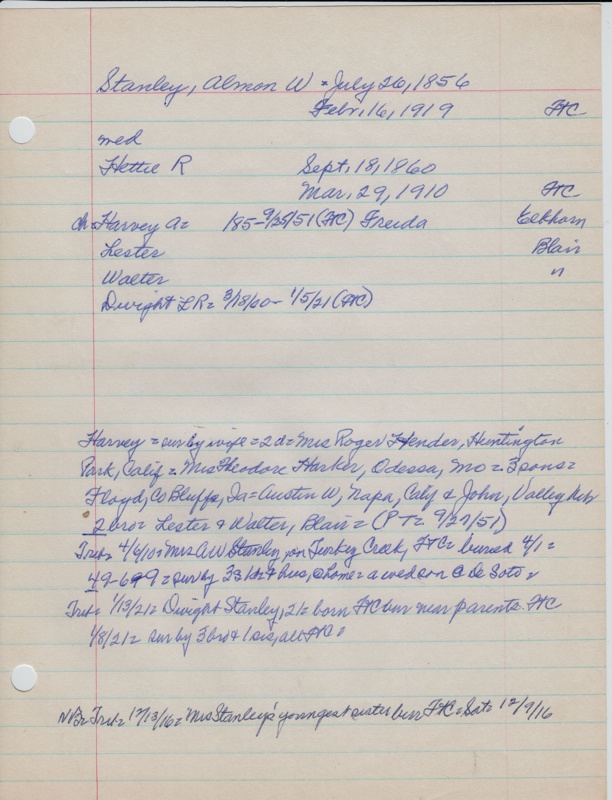 Stanley, Almon W = July 26, 1856
Febr. 16, 1919 FtC
wed
Hettie R Sept. 18, 1860
Mar. 29, 1910 FtC
ch = Harvey A = 185 - 9/27/51 (FtC) Freida Elkhorn
Lester Blair
Walter "
Dwight LR = 3/18/00 - 1/5/21 (FtC)
Harvey = sur by wife = 2 d = Mrs Roger Hender, Huntington
Park, Calif = Mrs Theodore Harker, Odessa, Mo = 3 sons =
Floyd, Co Bluffs, Ia = Austin W, Napa, Calif & John, Valley Neb
2 bro = Lester & Walter, Blair = (PT = 9/27/51)
Trib = 4/6/10 = Mrs AW Stanley, on Turkey Creek, FtC = buried 4/1 =
49-6-9 = sur by 3s 1d & hus, @ home = a wed son @ De Soto =
Trib = 1/13/21 = Dwight Stanley, 21 = born FtC bur near parents FtC
1/8/21 = sur by 3 bro & 1 sis, all FtC
NB = Trib = 12/13/16 = Mrs Stanley's youngest sister bur FtC = Sat = 12/9/16